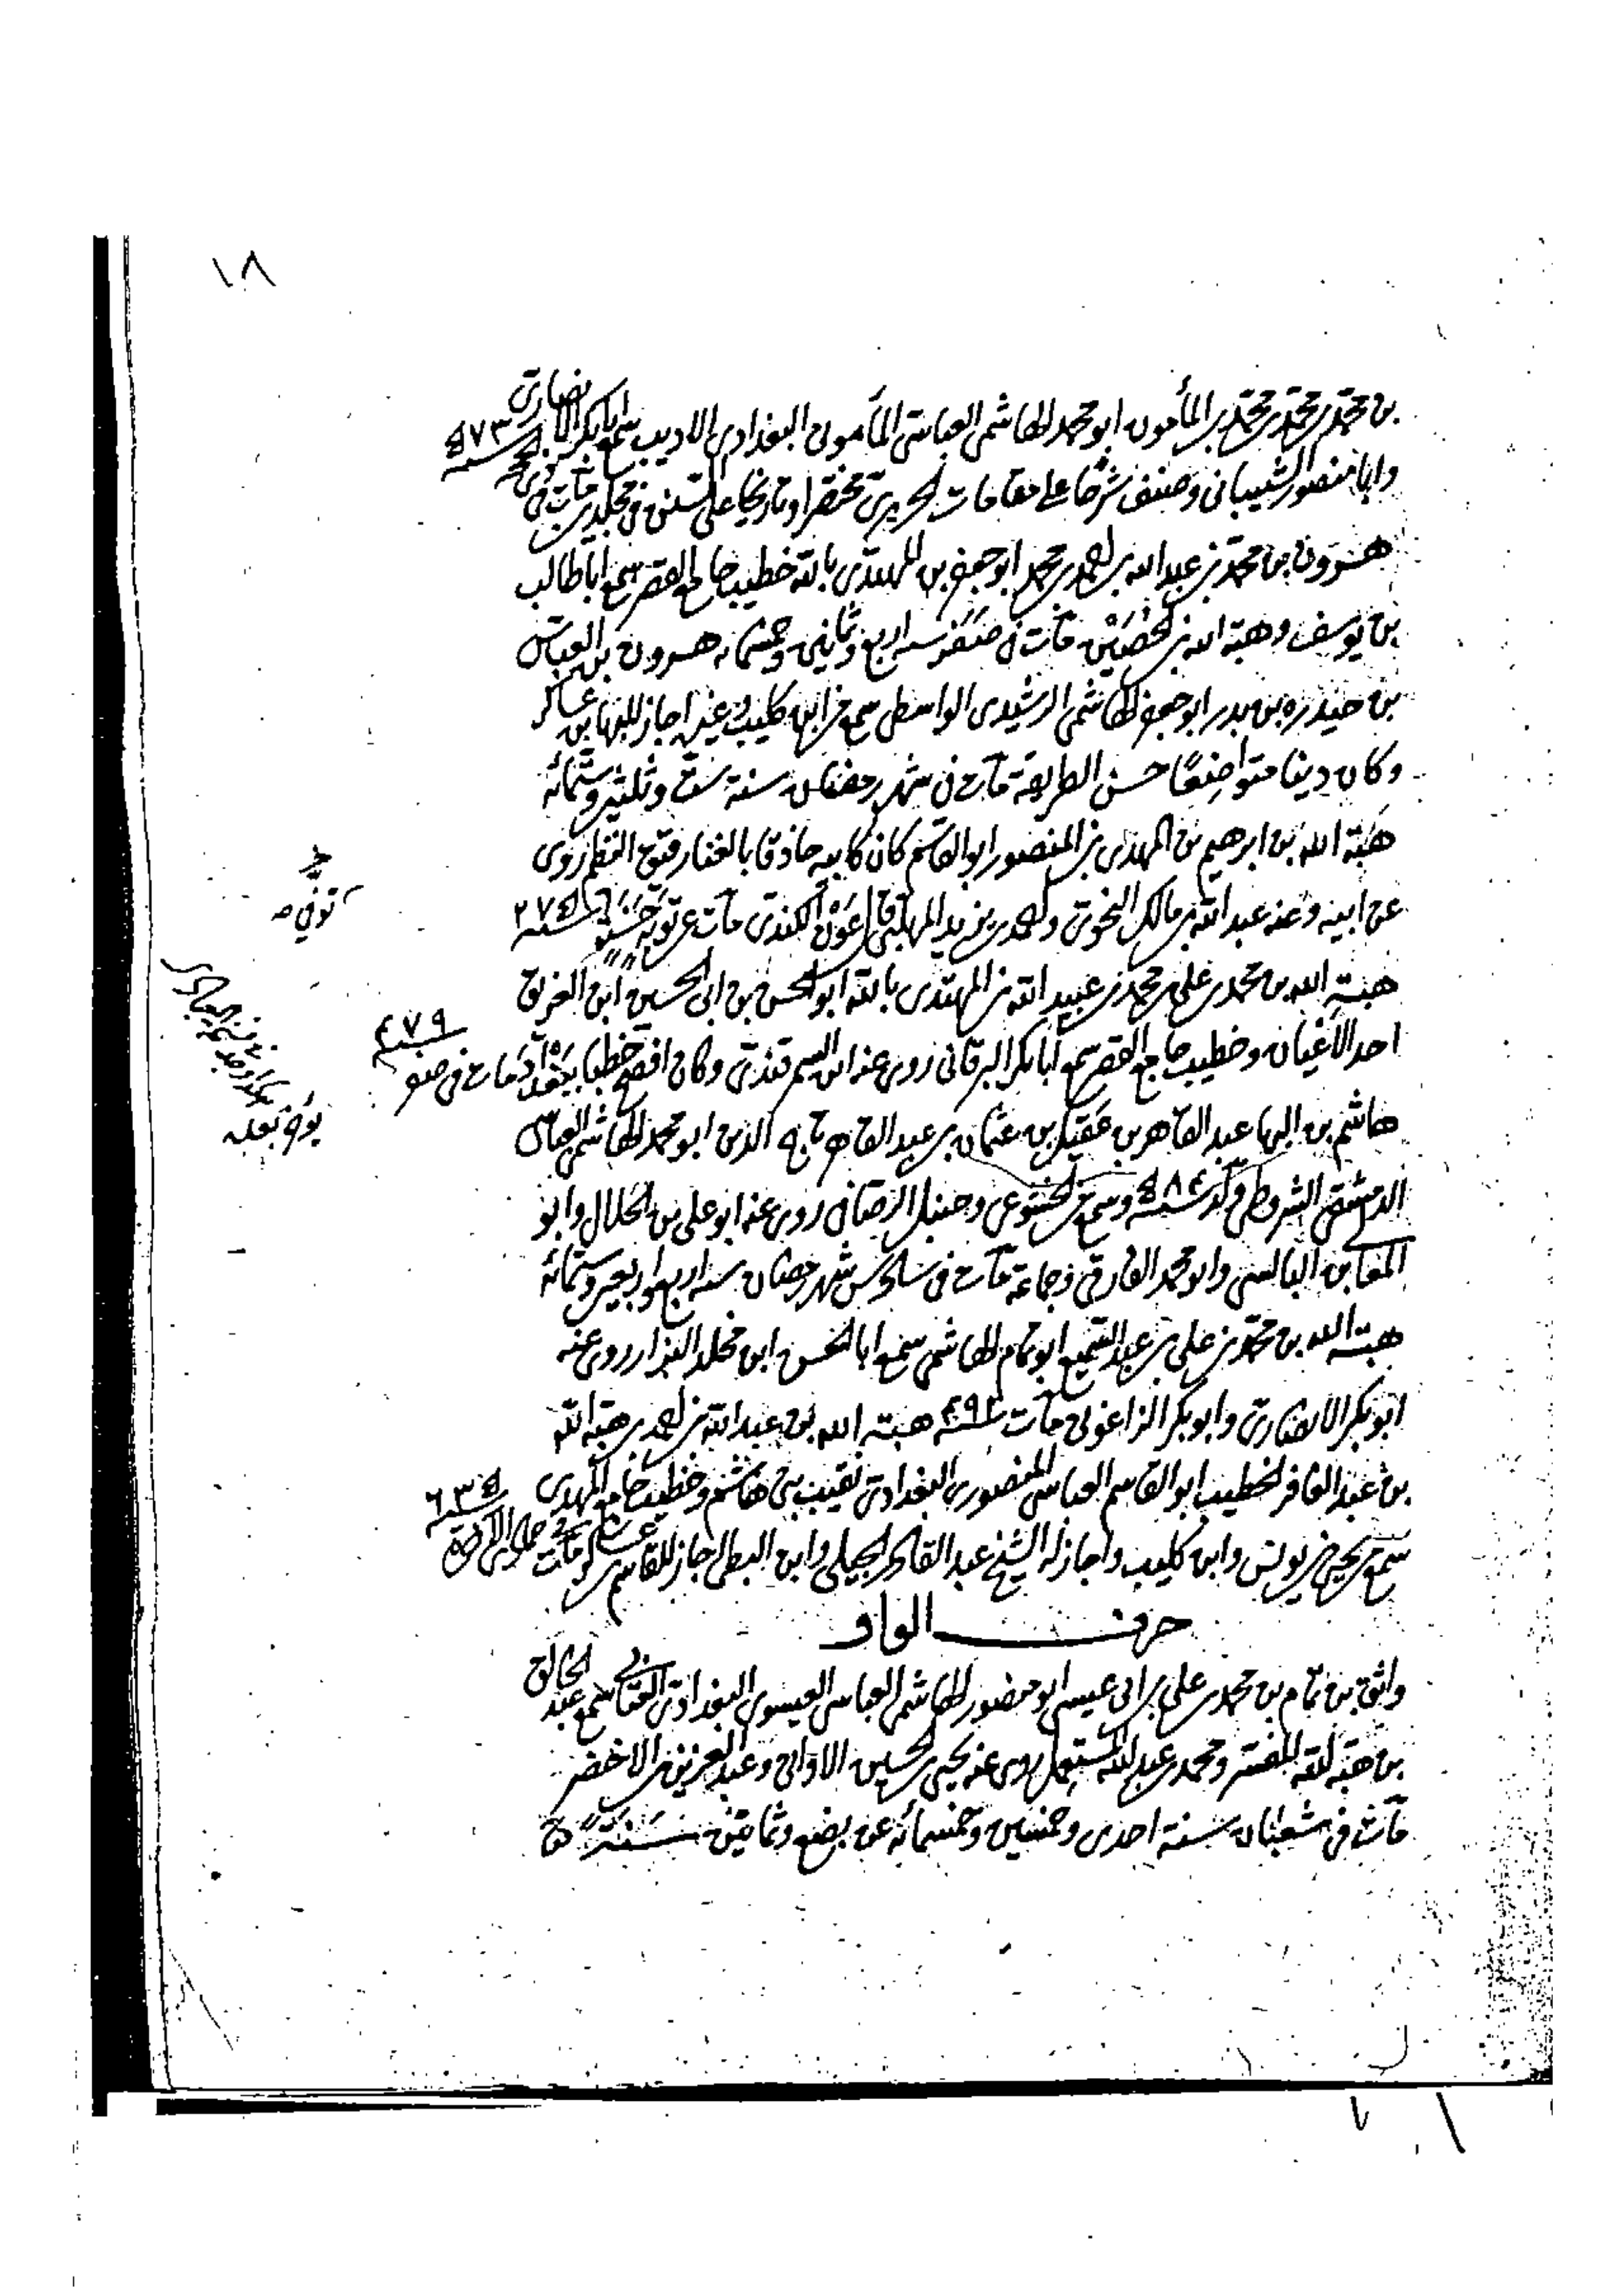 ١٨
بن محمد بن محمد بن محمد بن المأمون ابو محمد الهاشمى العباسى المأمونى البغدادى الاديب سمع ابا بكر الانصارى
وابا منصور الشيبانى وصنف شرحا على مقامات الحريرى مختصرا وتاريخا على السنين فى مجلدين مات فى ذى الحجة سنة ٥٧٣
هرون بن محمد بن عبد الله بن احمد بن محمد ابو جعفر بن المهتدى بالله خطيب جامع القصر سمع اباطالب
بن يوسف وهبة الله بن الحصين مات فى صفر سنة اربع وثمانين وخمسمائه هرون بن العباس
بن حيدره بن بدر ابو جعفر الهاشمى الرشيدى الواسطى سمع من ابن كليب وغيره اجاز للبها بن عساكر
وكان دينا متواضعًا حسن الطريقة مات فى شهر رمضان سنة ست وثلثين وستمائه
هبة الله بن ابرهيم بن المهدى بن المنصور ابو القاسم كان كابيه حاذقا بالغنا رقيق النظم روى
عن ابيه وعنه عبد الله بن مالك النحوى واحمد بن يزيد المهلبى وعون الكندى مات عن توبة حسنة سنة ٢٧٥
هبة الله بن محمد بن على بن محمد بن عبيد الله بن المهتدى بالله ابو الحسن بن ابى الحسين ابن الغريق
احد الاعيان وخطيب جامع القصر سمع ابا بكر البرقانى روى عنه ابن السمرقندى وكان افصح خطبا بغداد مات فى صفر سنة ٤٧٩
هاشم بن البها عبد القاهر بن عقيل بن عثمان بن عبد القاهر تاج الدين ابو محمد الهاشمى العباسى
الدمشقى الشروطى ولد سنة ٥٨٤ وسمع من الخشوعى وحنبل الرصافى روى عنه ابو على بن الخلال وابو
المعا بن البالسى وابو محمد الفارقى وجماعة مات فى شهر رمضان سنة اربع واربعين وستمائه
هبة الله بن محمد بن على بن عبد السميع ابو تمام الهاشمى سمع ابا الحسن ابن مخلد البزار روى عنه
ابو بكر الانصارى وابو بكر الزاغونى مات سنة ٤٩٢ هبة الله بن عبد الله بن احمد بن هبة الله
بن عبد القادر الخطيب ابو القاسم العباسى المنصورى البغدادى نقيب بنى هاشم وخطيب جامع المهدى
سمع من يحيى بن يونس وابن كليب واجاز له الشيخ عبد القادر الجيلى وابن البطى اجاز للقاسم بن عساكر مات فى جمادى الآخرة سنة ٦٣٥
حرف الواو
واثق بن تمام بن محمد بن على بن ابى عيسى ابو منصور الهاشمى العباسى العيسوى البغدادى العتابى سمع عبد الخالق
بن هبة الله المفسر ومحمد بن عبد الله المستعمل روى عنه يحيى بن الحسين الاوانى وعبد العزيز بن الاخضر
مات فى شعبان سنة احدى وخمسين وخمسمائه عن بضع وثمانين سنة
توفى